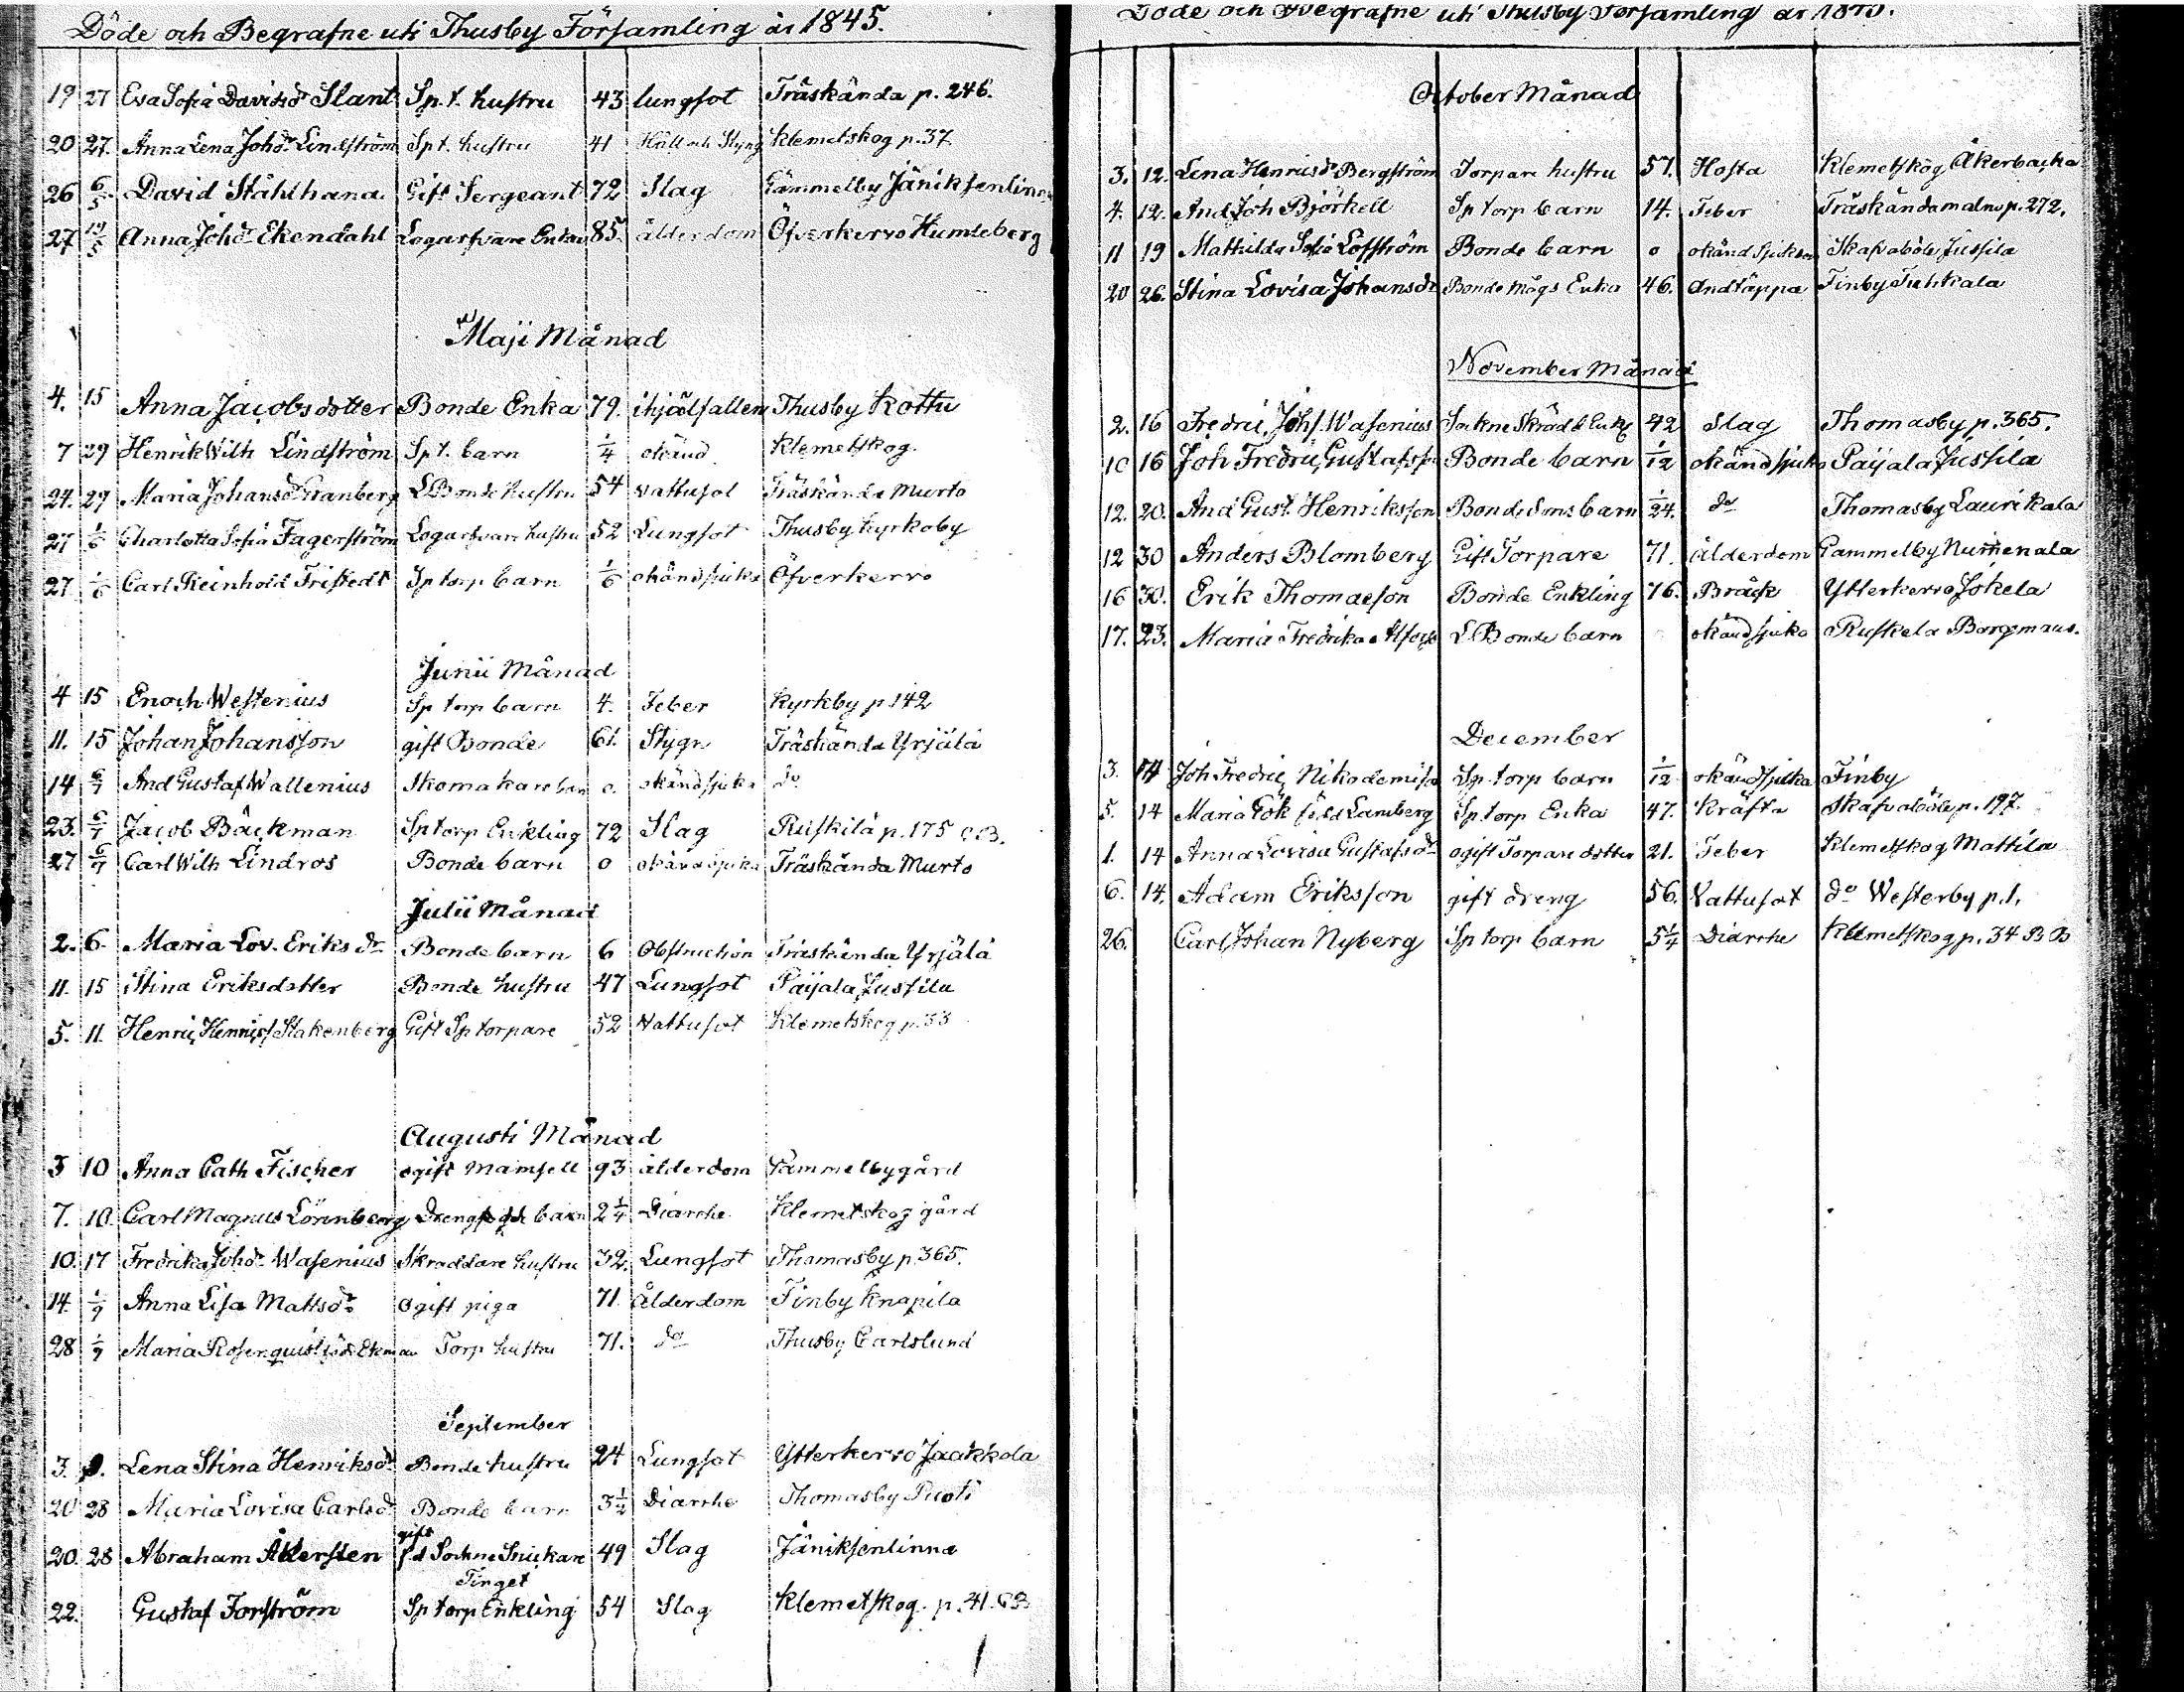 Döde och Begrafne uti Thusby Församling år 1845.
19 27 Eva Sofia Davidsdr Slant Sp. t. hustru 43 lungsot Träskända p. 246.
20 27. Anna Lena Johdr Lindström Sp t. hustru 41 Håll och Styng Klemetskog p. 37
26 6/5 David Ståhlhana Gift Sergeant 72 Slag Gammelby Jäniksenlinna
27 12/5 Anna Johdr Ekendahl Logarfvare Enka 85. ålderdom Öfverkervo Humleberg
Maji Månad
4. 15 Anna Jacobsdotter Bonde Enka 79. ihjälfallen Thusby Kottu
7 29 Henrik Wilh Lindström Sp t. barn 1/4 okänd Klemetskog
24. 29 Maria Johansdr Granberg L Bonde hustru 54 vattusot Träskända Murto
27 1/6 Charlotta Sofia Fagerström Logarfvare hustru 52 Lungsot Thusby Kyrkoby
27. 1/6 Carl Reinhold Fristedt Sp torp barn 1/6 okänd sjuka Öfverkervo
Junii Månad
4 15 Enoch Westenius Sp torp barn 4. Feber Kyrkby p 142
11. 15 Johan Johansson gift Bonde 61. Stygn Träskända Yrjälä
14 6/7 And Gustaf Wallenius Skomakare barn o. okänd sjuka do
23. 6/7 Jacob Bäckman Sp torp Enkling 72 Slag Ruskilä p. 175 CB.
27 6/7 Carl Wilh Lindros Bonde barn o okänd sjuka Träskända Murto
Julii Månad
2. 6. Maria Lov. Eriksdr Bonde barn 6 Obstruction Träskända Yrjälä
11. 15 Stina Eriksdotter Bonde hustru 47 Lungsot Paijala Jussila
5. 11. Henric Henricss Stakenberg Gift Sp torpare 52 Vattusot Klemetskog p. 33
Augusti Månad
3 10 Anna Cath Fischer ogift Mamsell 93 ålderdom Gammelbygård
7. 10. Carl Magnus Lörnberg barn 2 1/4 Diarrhe Klemetskog gård
10. 17 Fredrika Johdr Wasenius Skraddare hustru 32. Lungsot Thomasby p. 365.
14. 1/9 Anna Lisa Mattsdr Ogift piga 71. Ålderdom Finby Knapila
28 1/9 Maria Rosenquist född Ekman Torp hustru 71. do Thusby Carlslund
September
3. 9. Lena Stina Henriksdr Bonde hustru 24 Lungsot Ytterkervo Jaakkola
20 28 Maria Lovisa Carlsdr Bonde barn 3 1/2 Diarrhe Thomasby Puoti
gift
20. 28 Abraham Åkersten fd Sockne Snickare 49 Slag Jäniksenlinna
Tinget
22. Gustaf Forström Sp torp Enkling 54 Slag Klemetskog. p. 41. CB
Döde och Begrafne uti Thusby Församling år 1845.
October Månad
3. 12. Lena Henricsdr Bergström Torpare hustru 57. Hosta Klemetskog Åkerbacka
4. 12. And Joh Björkell Sp torp barn 14. Feber Träskända malm p. 272.
11 19 Mathilda Sofia Löfström Bonde barn o okänd sjukdom Skafvaböle Jussila
20 26. Stina Lovisa Johansdr Bonde Mågs Enka 46. Andtäppa Finby Tuhkala
November Månad
2. 16 Fredric Johs. Wasenius Sockne Skrädd Enkl 42 Slag Thomasby p. 365.
10 16 Joh Fredric Gustafsson Bonde barn 1/12 okänd sjuka Paijala Jussila
12. 20. And Gust. Henriksson Bonde Sons barn 1/24. do Thomasby Laurikala
12 30 Anders Blomberg Gift Torpare 71. ålderdom Gammelby Numenala
16 30. Erik Thomasson Bonde Enkling 76. Bråck Ytterkervo Jokela
17. 23. Maria Fredrika L Bonde barn okänd sjuka Ruskela Bargmans.
December
3. 14 Joh Fredric Nikodemiss Sp. torp barn 1/12 okänd sjuka Finby
5. 14 Maria Kök född Lamberg Sp. torp Enka 47. Kräfta Skafvaböle p. 197.
1. 14 Anna Lovisa Gustafsdr ogift Torpare dotter 21. Feber Klemetskog Mattila
6. 14. Adam Eriksson gift dreng 56. Vattusot do Westerby p. 1.
26. Carl Johan Nyberg Sp torp barn 5 1/4 Diarrhe Klemetskog p. 34 BB